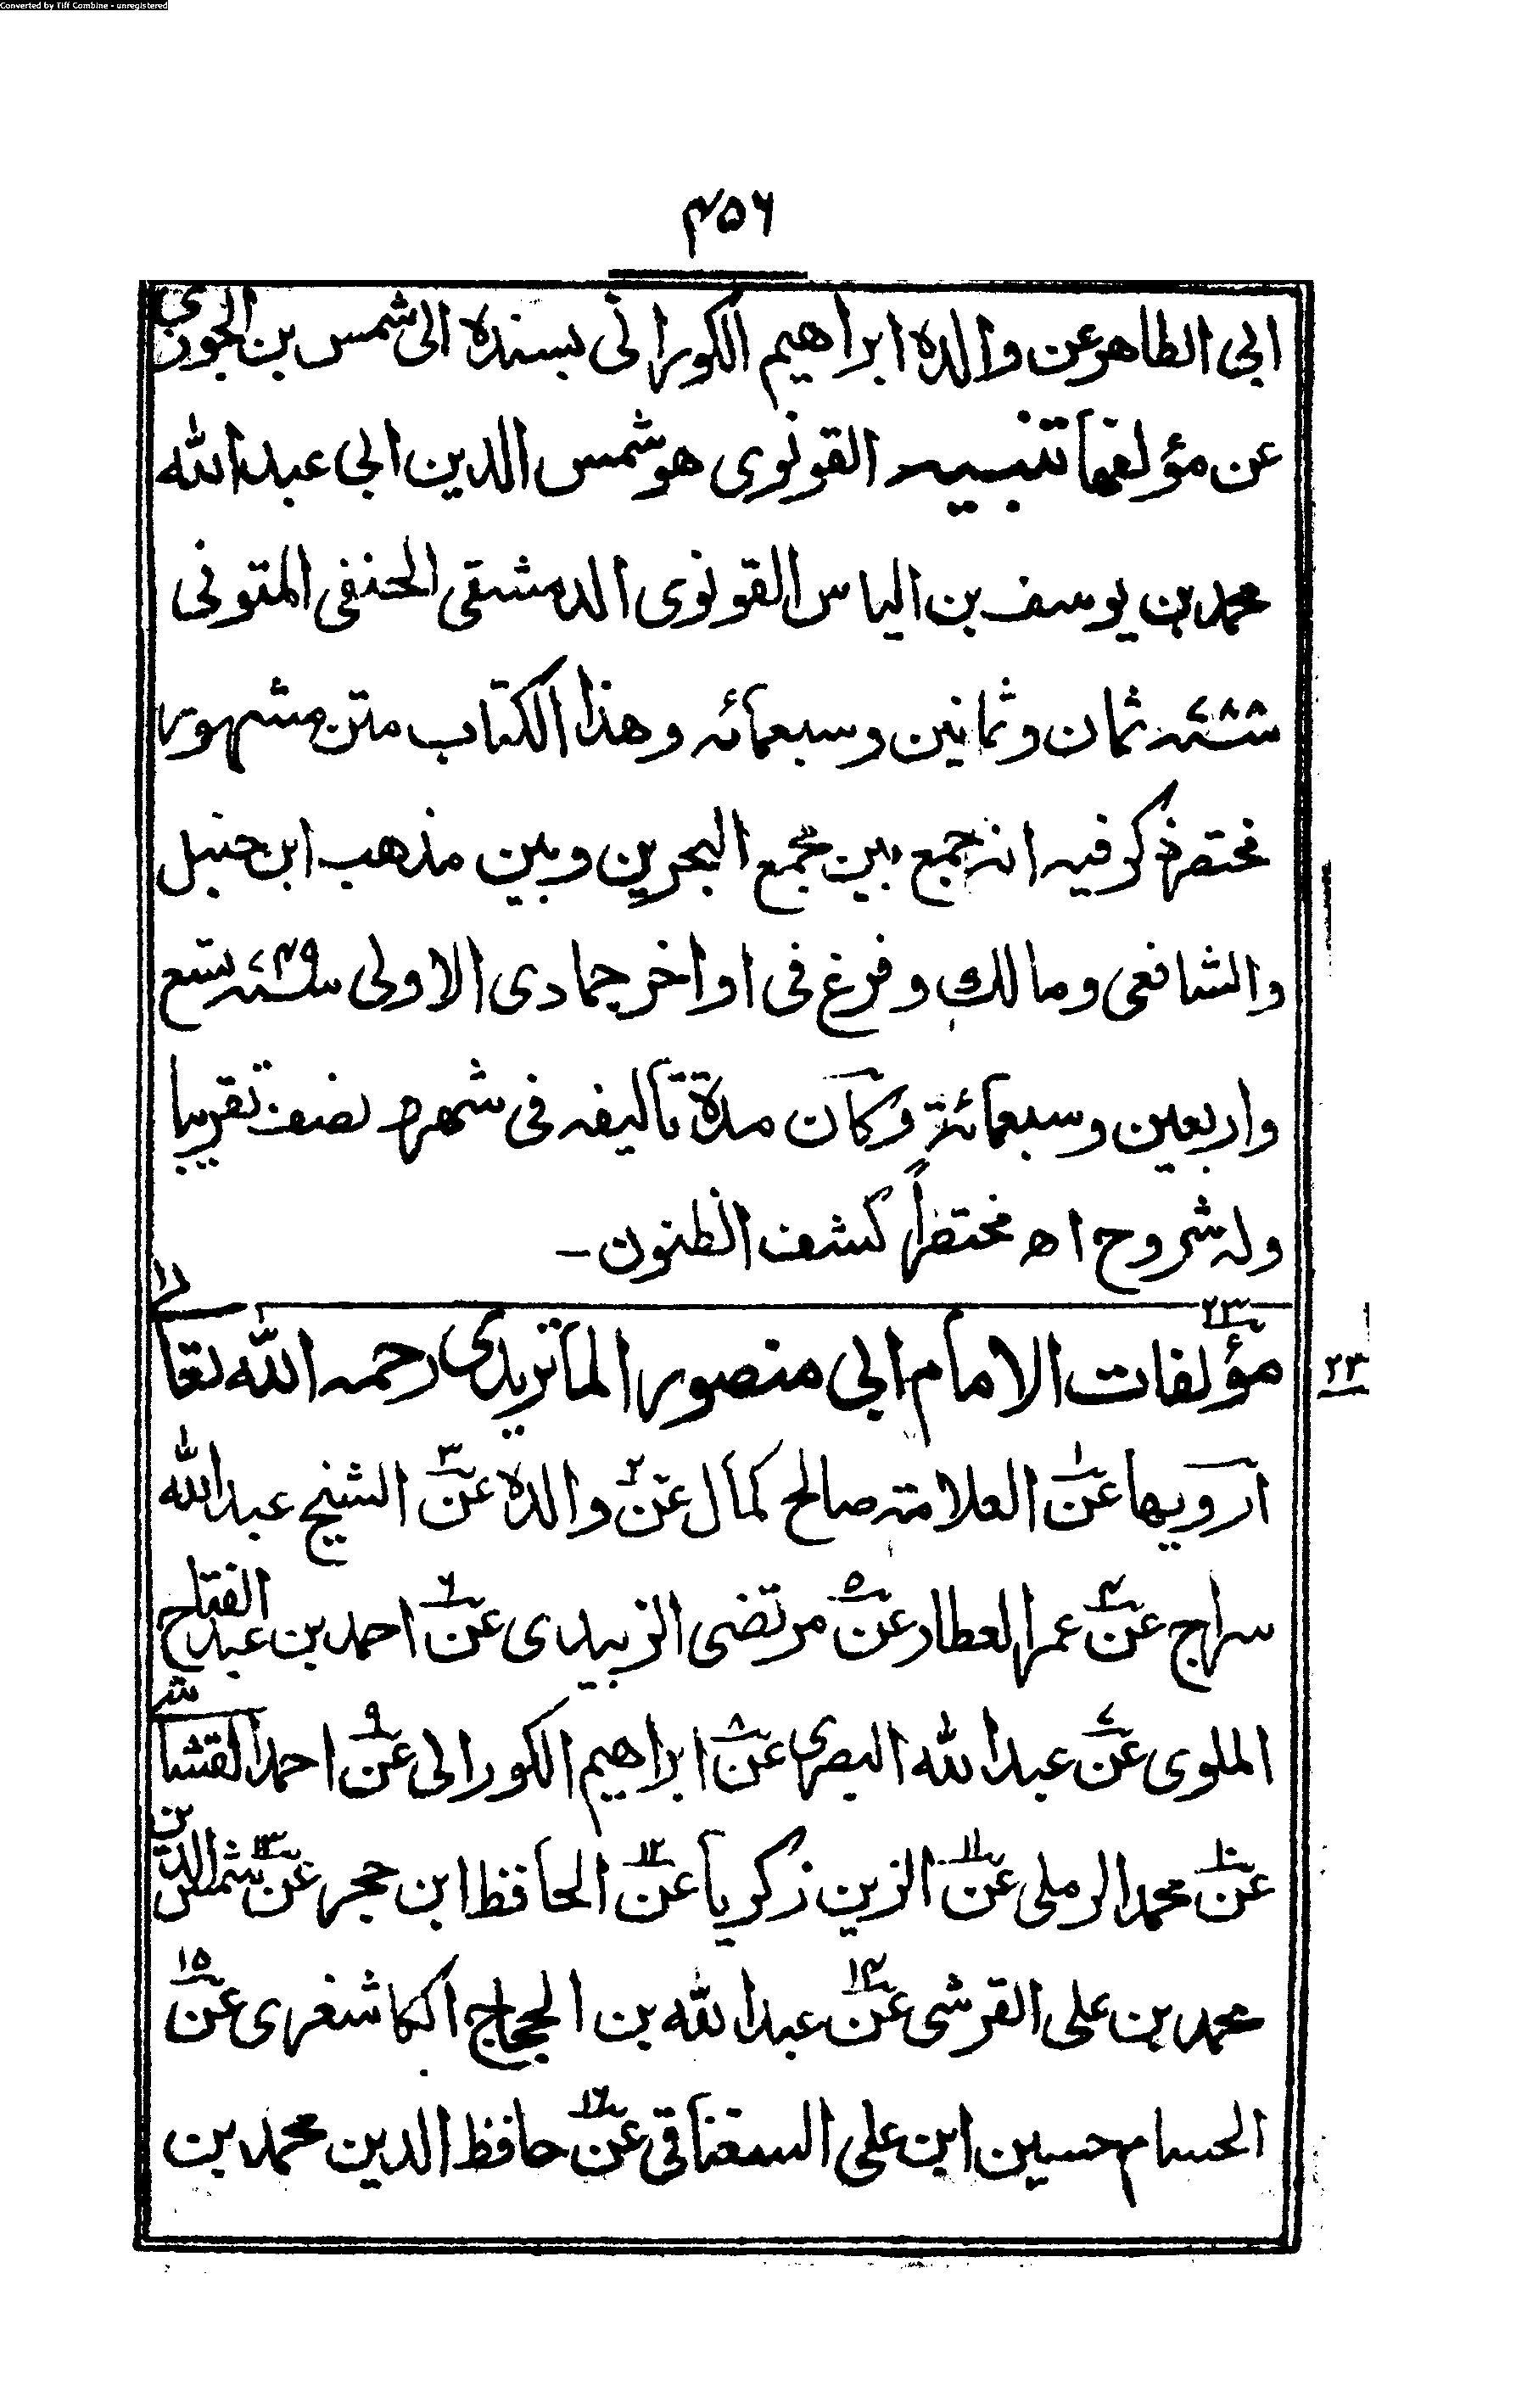 Converted by Tiff Combine - unregistered
۴۵۶
ابی الطاهر عن والده ابراهیم الکورانی بسنده الی شمس بن الجوزی
عن مؤلفها تنبیه القونوی هو شمس الدین ابی عبد الله
محمد بن یوسف بن الیاس القونوی الدمشقی الحنفی المتوفی
سنة ۷۸۸ ثمان وثمانین وسبعمائه وهذا الکتاب متن مشهور
مختصر ذکر فیه انه جمع بین مجمع البحرین وبین مذهب ابن حنبل
والشافعی ومالک وفرغ فی اواخر جمادی الاولی سنة ۷۴۹ تسع
واربعین وسبعمائة وکان مدة تألیفه فی شهر ونصف تقریبا
وله شروح اھ مختصراً کشف الظنون -
۲۳ مؤلفات الامام ابی منصور الماتریدی رحمه الله تعالی
۲۳
ارویها عن۱ العلامة صالح کمال عن۲ والده عن۳ الشیخ عبد الله
سراج عن۴ عمر العطار عن۵ مرتضی الزبیدی عن۶ احمد بن عبد الفتاح
الملوی عن۷ عبد الله البصری عن۸ ابراهیم الکورانی عن۹ احمد القشاشی
عن۱۰ محمد الرملی عن۱۱ الزین زکریا عن۱۲ الحافظ ابن حجر عن۱۳ شمس الدین
محمد بن علی القرشی عن۱۴ عبد الله بن الحجاج الکاشغری عن۱۵
الحسام حسین ابن علی السغناقی عن۱۶ حافظ الدین محمد بن